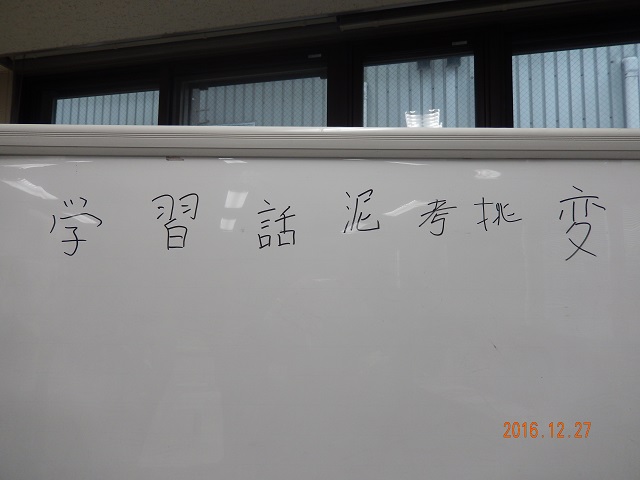 学 習 話 泥 考 挑 変
2016.12.27